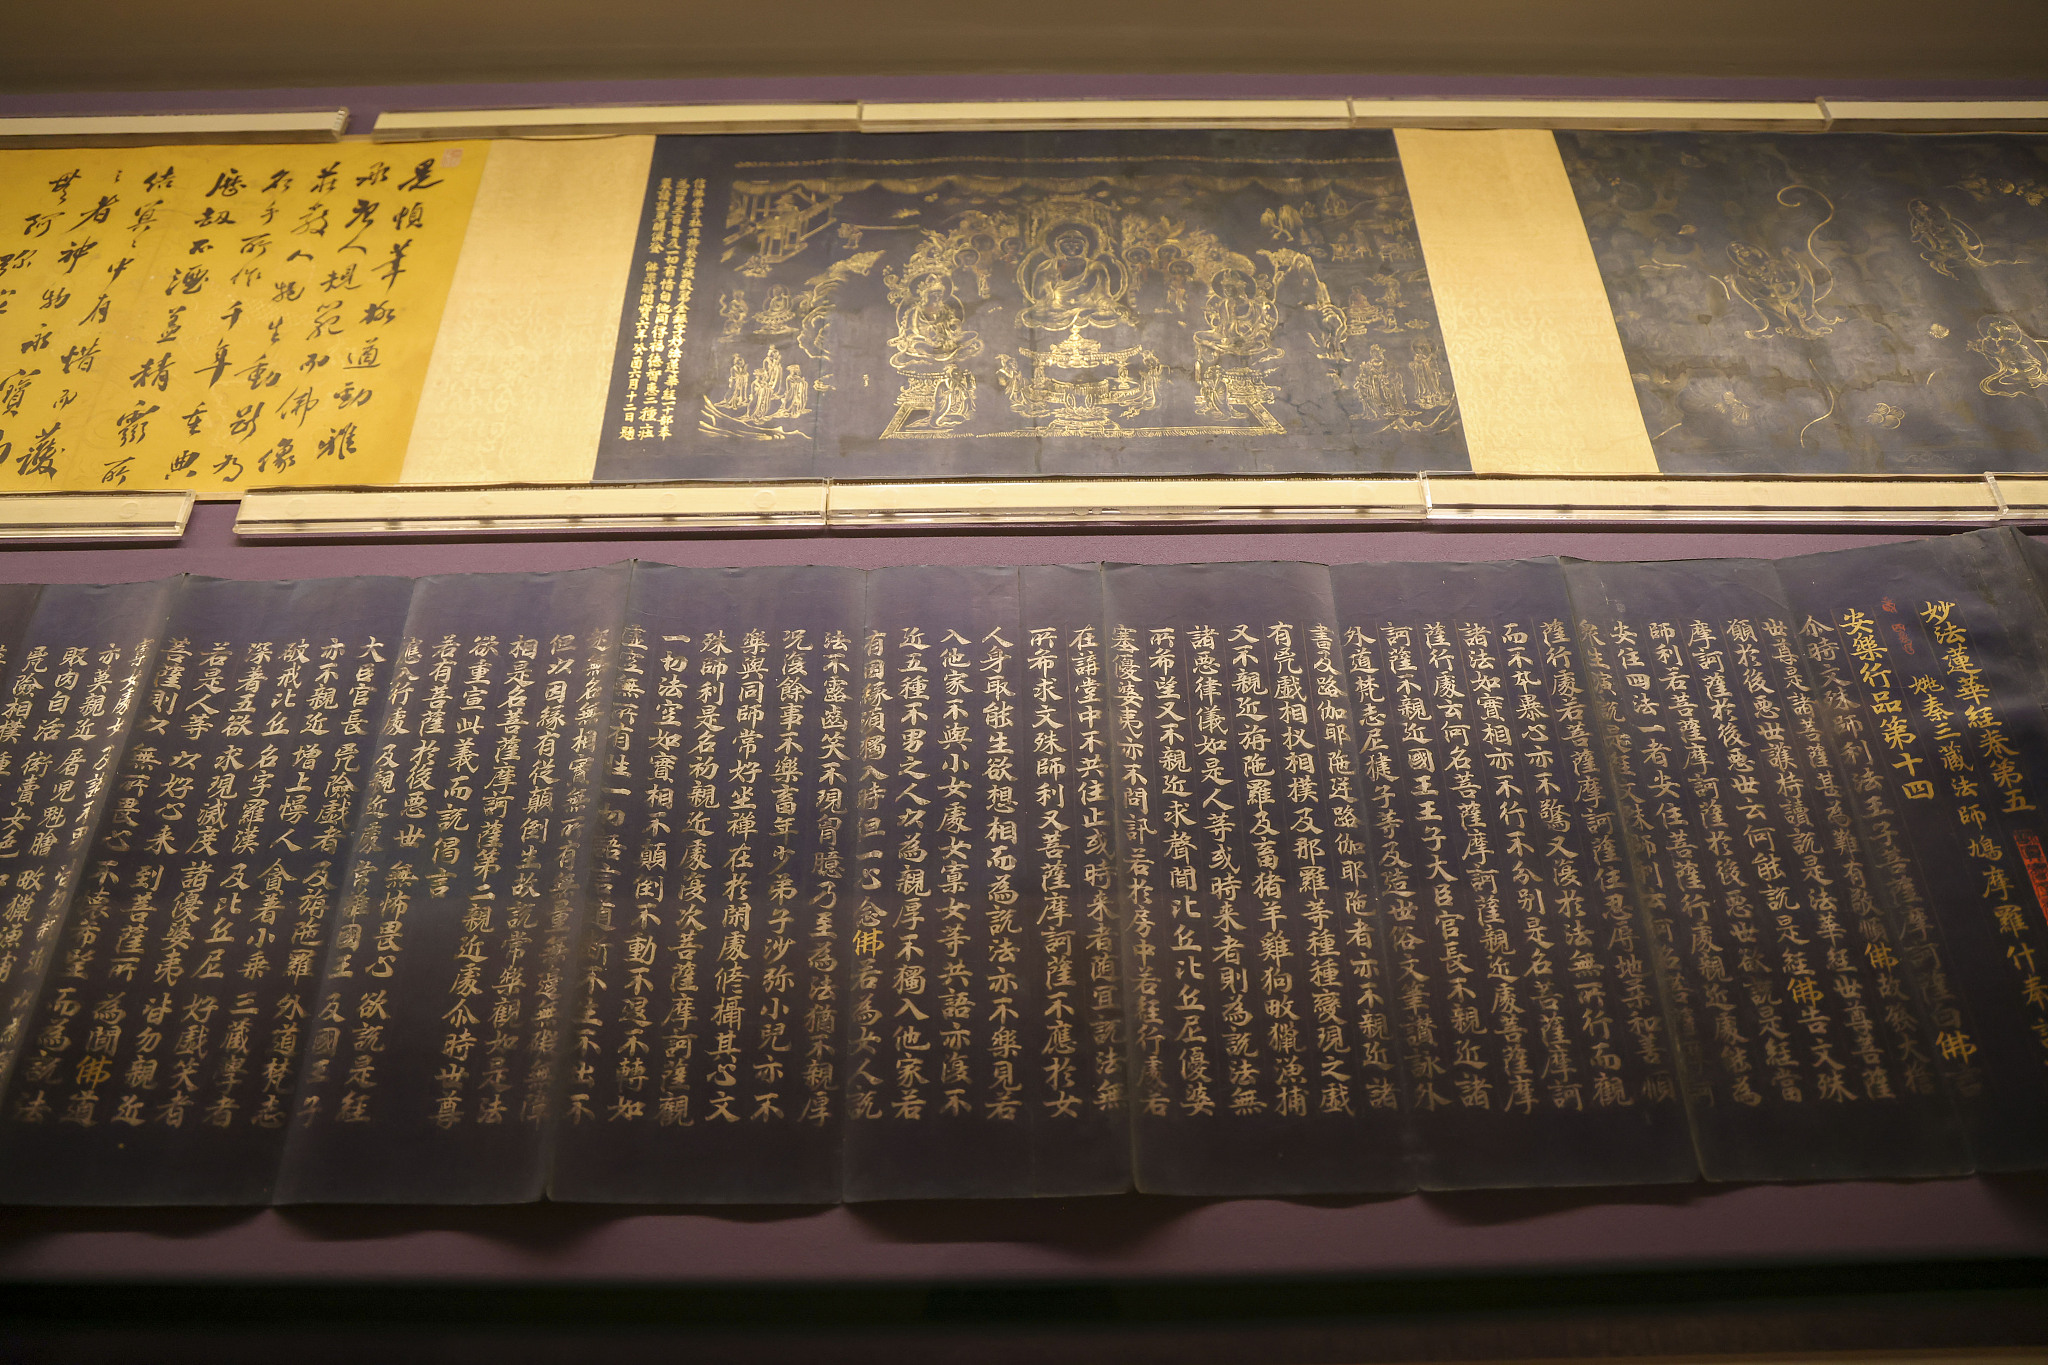 信佛弟子杜遇特發志誠敬寫金銀字妙法蓮華經一十部奉
為四恩三有普及一切有情自他同得福德智惠二種莊
時開寶六年癸酉六月十二日題
是幀筆極遒動雅
承唐人規範而佛像
人物生動
名手所作千年重典
歷劫不湮蓋精靈所
結冥冥中有惜而護
者神物永寶
阿彌
妙法蓮華經卷第五
姚秦三藏法師鳩摩羅什奉
安樂行品第十四
尒時文殊師利法王子菩薩摩訶薩白佛言
世尊是諸菩薩甚為難有敬順佛故發大擔
願於後惡世護持讀說是法華經世尊菩薩
摩訶薩於後惡世云何能說是經佛告文殊
師利若菩薩摩訶薩於後惡世欲說是經當
安住四法一者安住菩薩行處親近處能為
眾生演說是經文殊師利云何名菩薩摩訶
薩行處若菩薩摩訶薩住忍辱地柔和善順
而不卒暴心亦不驚又復於法無所行而觀
諸法如實相亦不行不分別是名菩薩摩訶
薩行處云何名菩薩摩訶薩親近處菩薩摩
訶薩不親近國王王子大臣官長不親近諸
外道梵志尼揵子等及造世俗文筆讚詠外
書及路伽耶陁逆路伽耶陁者亦不親近諸
有兇戲相扠相撲及那羅等種種變現之戲
又不親近旃陁羅及畜猪羊雞狗畋獵漁捕
諸惡律儀如是人等或時來者則為說法無
所希望又不親近求聲聞比丘比丘尼優婆
塞優婆夷亦不問訊若於房中若經行處若
在講堂中不共住止或時來者隨宜說法無
所希求文殊師利又菩薩摩訶薩不應於女
人身取能生欲想相而為說法亦不樂見若
入他家不與小女處女寡女等共語亦復不
近五種不男之人以為親厚不獨入他家若
有因緣須獨入時但一心念佛若為女人說
法不露齒笑不現胷臆乃至為法猶不親厚
況復餘事不樂畜年少弟子沙弥小兒亦不
樂與同師常好坐禪在於閑處修攝其心文
殊師利是名初親近處復次菩薩摩訶薩觀
一切法空如實相不顛倒不動不退不轉如
虛空無所有性一切語言道斷不生不出不
起無名無相實無所有無量無邊無礙無障
但以因緣有從顛倒生故說常樂觀如是法
相是名菩薩摩訶薩第二親近處尒時世尊
欲重宣此義而說偈言
若有菩薩 於後惡世 無怖畏心 欲說是經
應入行處 及親近處 常離國王 及國王子
大臣官長 兇險戲者 及旃陁羅 外道梵志
亦不親近 增上慢人 貪著小乘 三藏學者
破戒比丘 名字羅漢 及比丘尼 好戲笑者
深著五欲 求現滅度 諸優婆夷 皆勿親近
若是人等 以好心來 到菩薩所 為聞佛道
菩薩則以 無所畏心 不懷希望 而為說法
寡女處女 及諸不男
亦莫親近
販肉自活 衒賣女色
兇險相撲